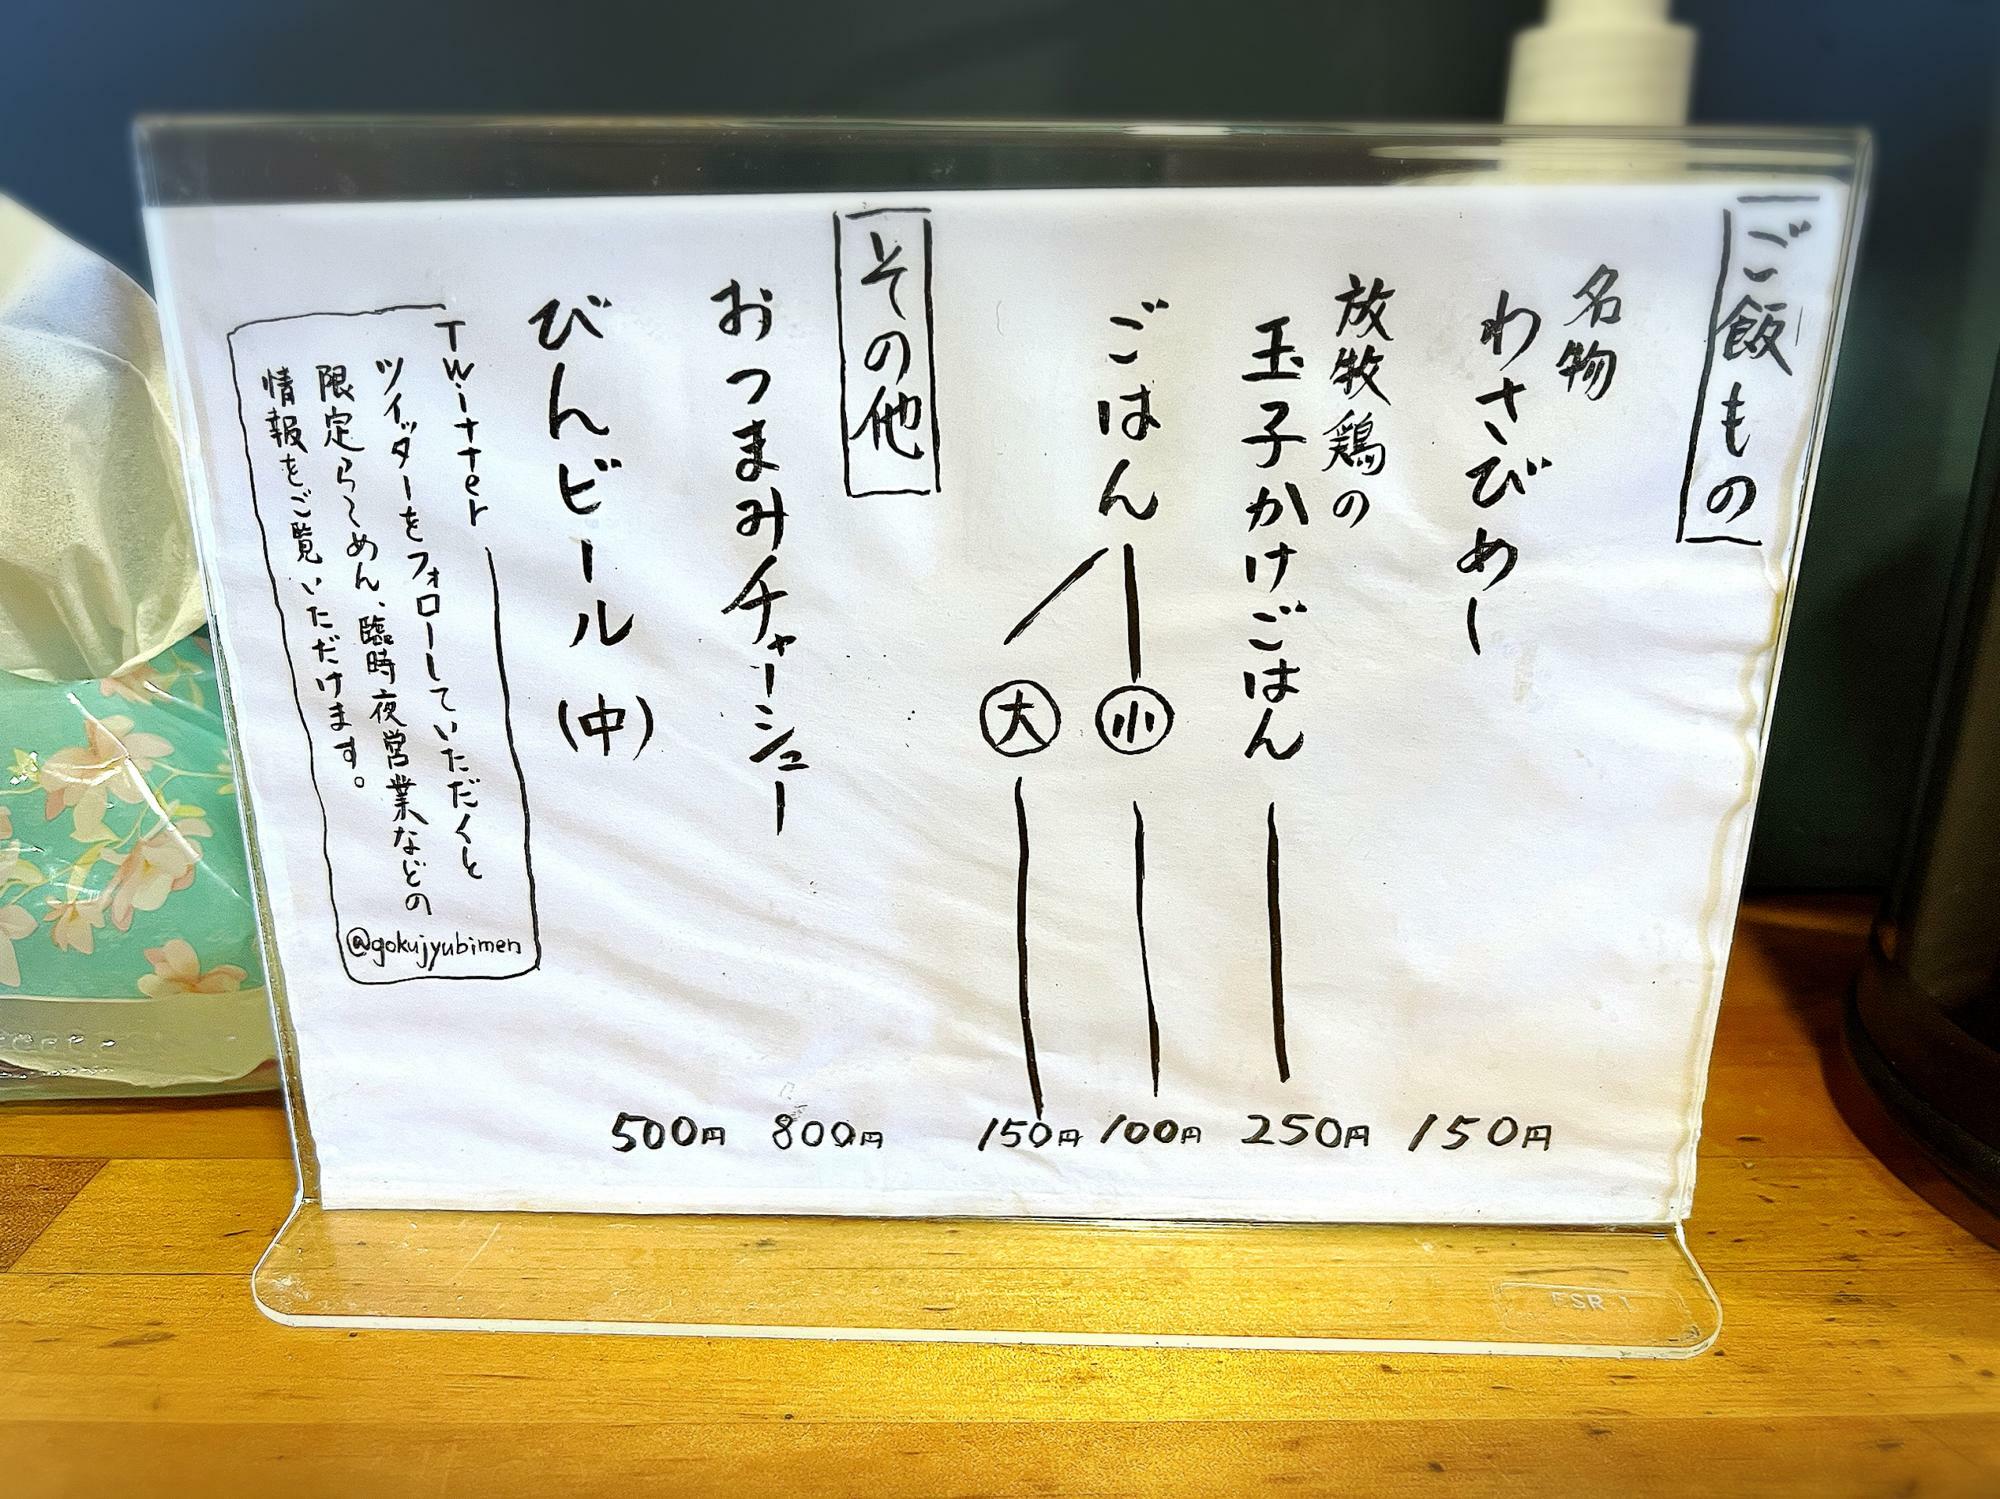 ご飯もの
名物
わさびめー
150円
放牧鶏の
玉子かけごはん
250円
ごはん
小
100円
大
150円
その他
おつまみチャーシュー
800円
びんビール(中)
500円
Twitter
ツイッターをフォローしていただくと
限定らーめん、臨時夜営業などの
情報をご覧いただけます。
@gokujyubimen